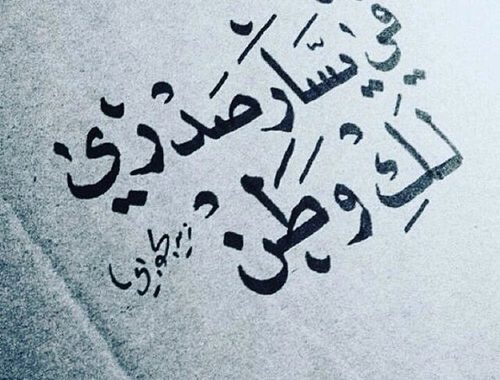 في يسَّارَ صَدْريّ
لَكِ وطَنْ